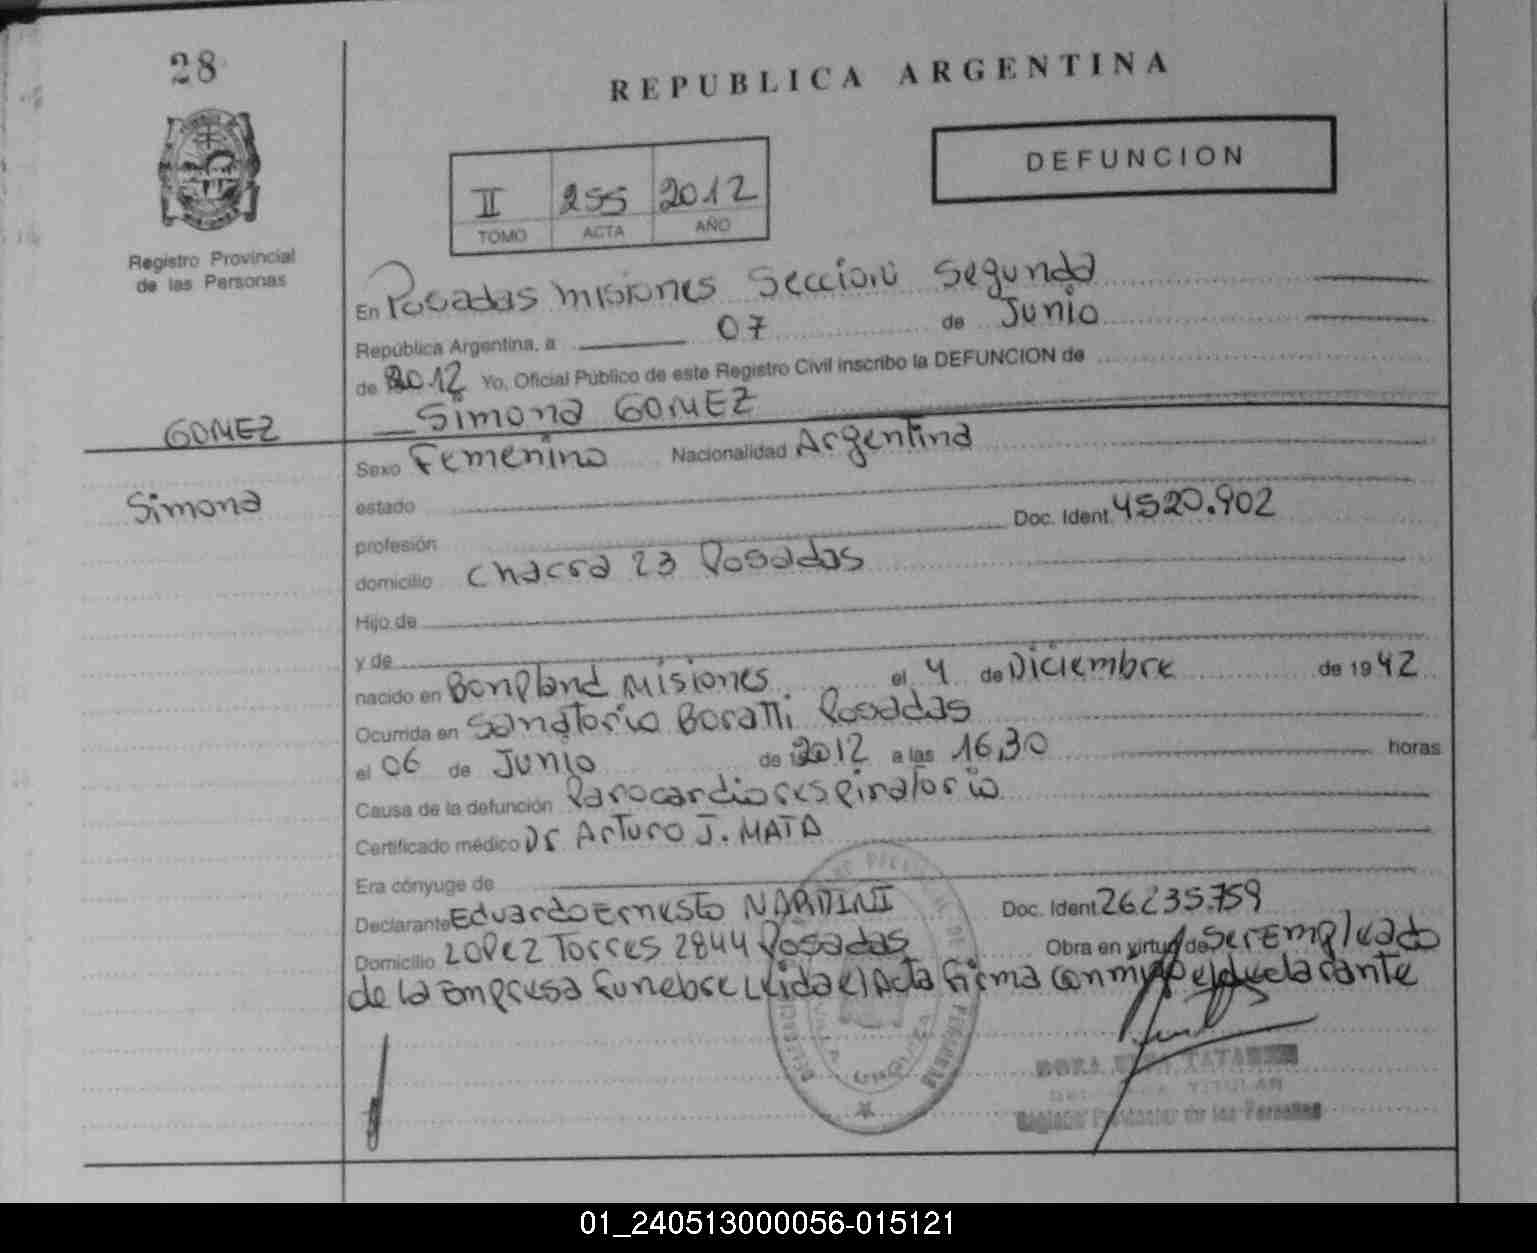 28
REPUBLICA ARGENTINA
DEFUNCION
II 255 2012
TOMO ACTA AÑO
Registro Provincial
de las Personas
En Posadas Misiones Seccion Segunda
República Argentina, a 07 de Junio
de 2012 Yo, Oficial Público de este Registro Civil inscribo la DEFUNCION de
Simona GOMEZ
GOMEZ
Simona
Sexo Femenino Nacionalidad Argentina
estado
profesión Doc. Ident. 4520.902
domicilio Chacra 23 Posadas
Hijo de
y de
nacido en Bonpland Misiones el 4 de Diciembre de 1942
Ocurrida en Sanatorio Boratti Posadas
el 06 de Junio de 2012 a las 16,30 horas
Causa de la defunción Parocardiorespiratorio
Certificado médico Dr Arturo J. MATA
Era cónyuge de
Declarante Eduardo Ernesto NARDINI Doc. Ident 26.235.759
Domicilio LOPEZ Torres 2844 Posadas Obra en virtud de Ser Empleado
de la Empresa Funebre Leida el Acta Firma con migo el declarante
TITULAR
Registro Provincial de las Personas
01_240513000056-015121